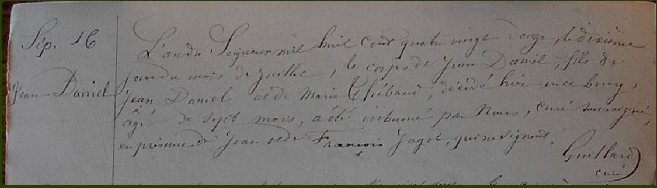 Sép. 16
Jean Daniel
L'an du Seigneur mil huit cent quatre vingt onze, le dixième
jour du mois de juillet, le corps de Jean Daniel, fils de
Jean Daniel et de Marie Thébaud, décédé hier en ce bourg,
âgé de sept mois, a été inhumé par Nous, curé soussigné,
en présence de Jean et de François Jagot, qui ne signent.
Guillard
curé